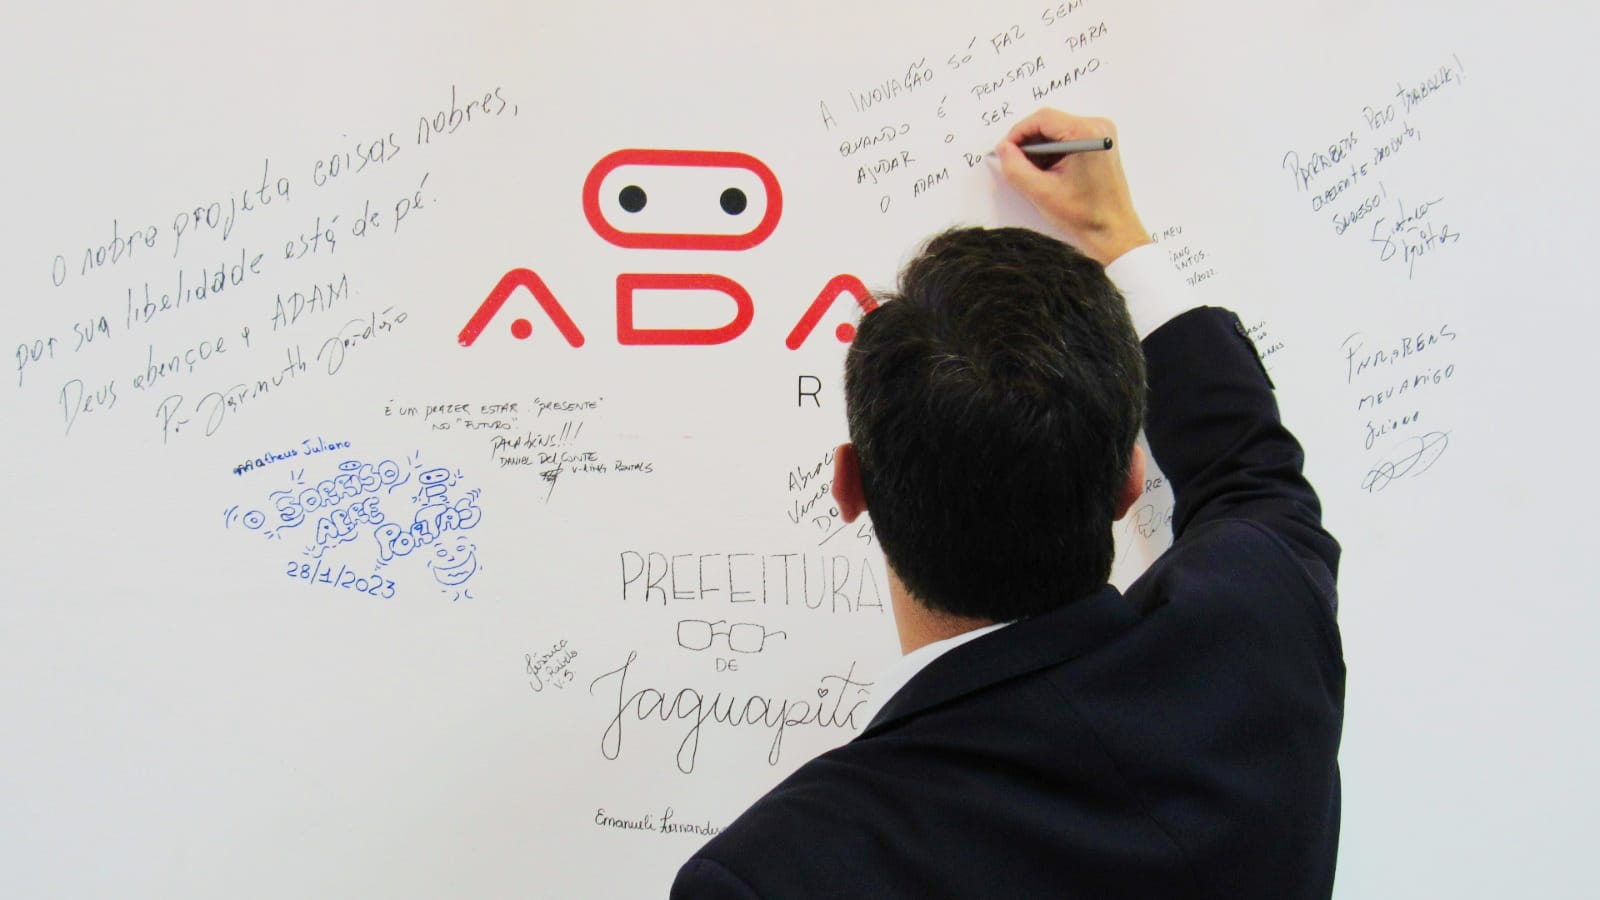 O nobre projeta coisas nobres,
por sua libelidade está de pé.
Deus abençoe o ADAM.
Pr. Jarmuth Jordão
A INOVAÇÃO SÓ FAZ
QUANDO É PENSADA PARA
AJUDAR O SER HUMANO.
O ADAM RO
PARABÉNS PELO TRABALHO!
EXCELENTE PRODUTO,
SUCESSO!
ADA
R
O MEU
É UM PRAZER ESTAR "PRESENTE"
NO "FUTURO".
PARABÉNS!!!
DANIEL DEL CONTE
V-KING RENTALS
Matheus Juliano
O SORRISO
ABRE
PORTAS
28/1/2023
MEU AMIGO
Juliano
PREFEITURA
DE
Jaguapitã
Jéssica
Rabelo
V.S.
Emanueli Fernandes